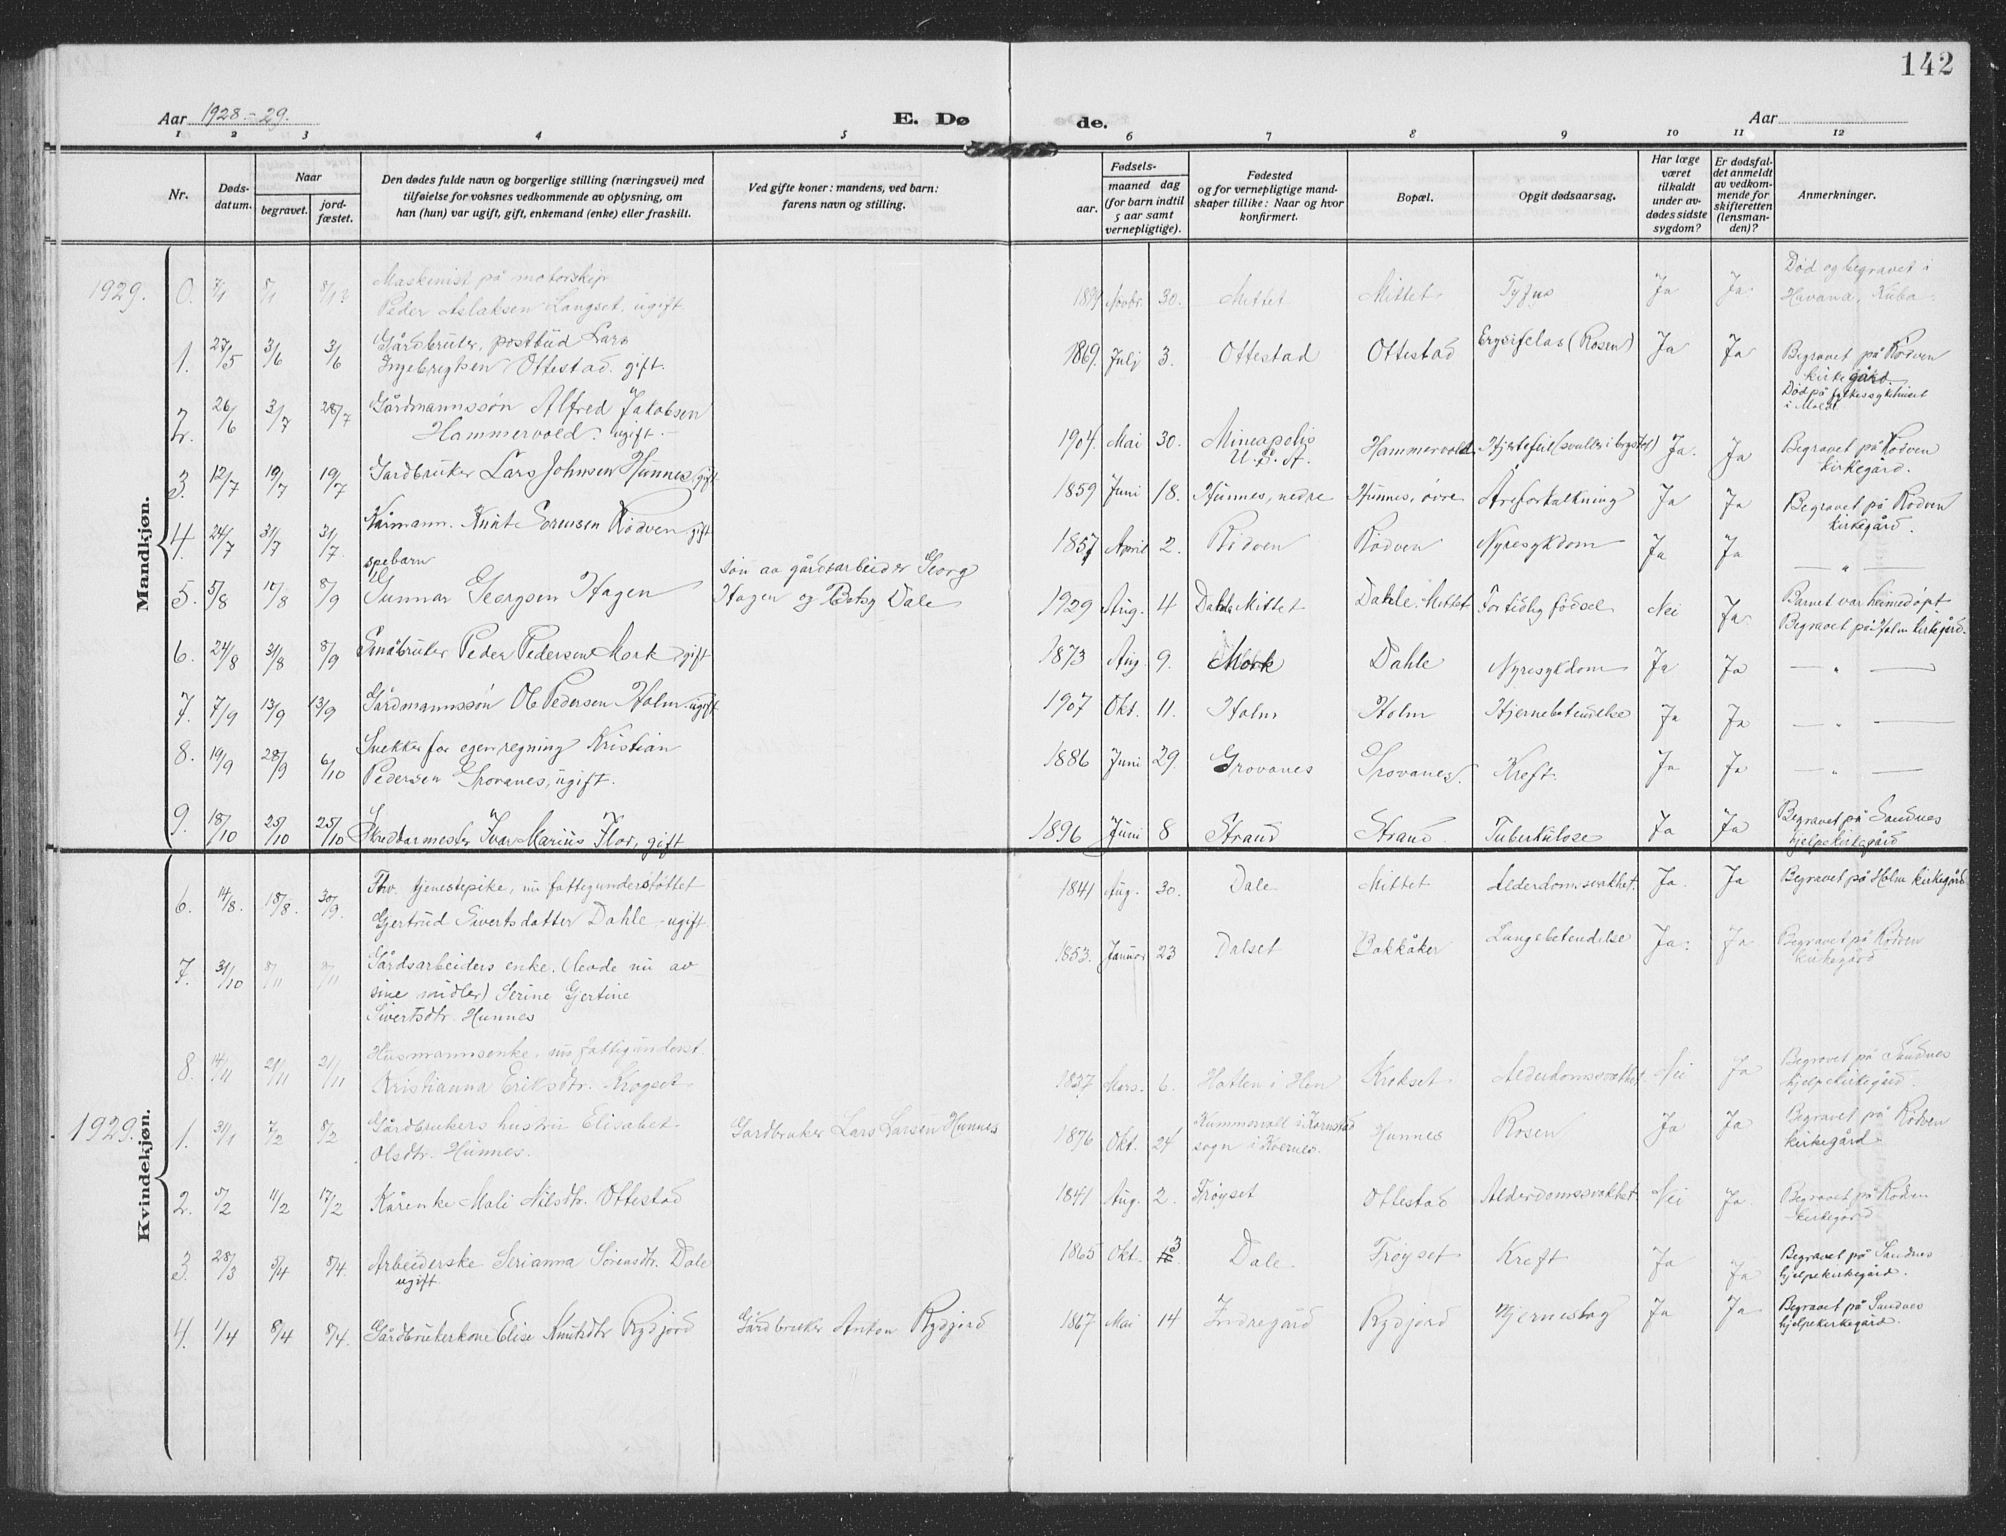 142
Aar 1928-29. E. Dø de. Aar
1 2 3 4 5 6 7 8 9 10 11 12
Nr.
Døds-
datum.
Naar
begravet.
jord-
fæstet.
Den dødes fulde navn og borgerlige stilling (næringsvei) med
tilføielse for voksnes vedkommende av oplysning, om
han (hun) var ugift, gift, enkemand (enke) eller fraskilt.
Ved gifte koner: mandens, ved barn:
farens navn og stilling.
Fødsels-
aar.
maaned dag
(for barn indtil
5 aar samt
vernepligtige).
Fødested
og for vernepligtige mand-
skaper tillike: Naar og hvor
konfirmert.
Bopæl.
Opgit dødsaarsag.
Har læge
været
tilkaldt
under av-
dødes sidste
sygdom?
Er dødsfal-
det anmeldt
av vedkom-
mende for
skifteretten
(lensman-
den)?
Anmerkninger.
Mandkjøn.
1929. 0. 7/1 8/1 Maskenist på motorskip
Peder Aslaksen Langset, ugift 18 Novbr. 30. Mittet Mittet Tyfus Ja Ja Død og begravet i
Havana, Kuba.
1. 27/5 3/6 3/6 Gårdbruker, postbud Lars
Ingebrigtsen Ottestad. gift. 1869. Julj 3. Ottestad Ottestad Erysifelas (Rosen) Ja Ja Begravet på Rødven
kirkegård.
2. 26/6 3/7 28/7 Gårdmannssøn Alfred Jakobsen
Hammervold. ugift. 1904. Mai 30. Mineapolis
U. S. A. Hammervold Hjertefeil Ja. Ja Død på fylkessykehuset
i Molde
Begravet på Rødven
kirkegård.
3. 12/7 19/7 19/7 Gardbruker Lars Johnsen Hunnes, gift 1859 Juni 18. Hunnes, nedre Hunnes, øvre Åreforkalkning Ja Ja Begravet på Rødven
kirkegård.
4. 24/7 31/7 31/7. Kårmann. Knut Sørensen Rødven, gift 1857 April 2. Rødven Rødven Nyresykdom Ja Ja — " —
5. 5/8 10/8 8/9 spebarn
Gunnar Georgsen Hagen søn av gårdsarbeider Georg
Hagen og Betsy Dale 1929 Aug. 4 Dahle Mittet Dahle, Mittet For tidlig fødsel Nei Ja Barnet var heimedøpt
Begravet på Holm kirkegård.
6. 24/8 31/8 8/9 Småbruker Peder Pedersen Mork, gift 1873 Aug. 9. Mork Dahle Nyresykdom Ja Ja — " —
7. 7/9 13/9 13/9 Gårdmannssøn Ole Pedersen Holm. ugift 1907 Okt. 11. Holm Holm Hjernebetendelse Ja Ja — " —
8. 19/9 28/9 6/10 Snekker for egen regning Kristian
Pedersen Grovanes, ugift. 1886 Juni 29. Grovanes Grovanes. Kreft. Ja Ja — " —
9. 18/10 25/10 25/10 Skreddarmester Ivar Marius Flor, gift 1896 Juni 8 Strand Strand Tuberkulose Ja Ja Begravet på Sandnes
hjelpekirkegård
Kvindekjøn.
6. 14/8. 18/8. 30/9. Fhv. tjenestepike, nu fattigunderstøttet
Gjertrud Sivertsdatter Dahle, ugift 1841 Aug. 30. Dale Mittet Alderdomssvakhet. Ja. Ja Begravet på Holm kirkegård
7. 31/10 8/11 8/11 Gårdsarbeiders enke. (levde nu av
sine midler) Serine Gjertine
Sivertsdtr. Hunnes 1853. Januar 23 Dalset Bakkåker Lungebetendelse Ja. Ja Begravet på Rødven
kirkegård
8. 14/11 21/11 21/11 Husmannsenke, nu fattigunderst.
Kristianna Eriksdtr. Krogset 1837 Mars. 6. Hatlen i Hen Krokset Alderdomssvakhet Nei Ja Begravet på Sandnes
hjelpekirkegård.
1929. 1. 31/1 7/2 8/2 Gårdbrukers hustru Elisabet
Olsdtr. Hunnes. Gardbruker Lars Larsen Hunnes 1876 Okt. 24 i Kornstad
sogn i Kvernes. Hunnes Rosen Ja Ja Begravet på Rødven
kirkegård
2. 5/2 11/2 17/2 Kårenke Mali Nilsdtr. Ottestad 1841 Aug. 2. Frøyset Ottestad Alderdomssvakhet Nei Ja Begravet på Rødven
kirkegård
3. 28/3 5/4 8/4. Arbeiderske Serianna Sørensdtr. Dale
ugift 1865 Okt. 3 Dale Frøyset Kreft Ja Ja Begravet på Sandnes
hjelpekirkegård.
4. 1/4 8/4 8/4. Gårdbrukerkone Elise Knutsdtr Rydjord Gårdbruker Anton Rydjord 1867 Mai 14 Indregård Rydjord Hjerneslag Ja Ja Begravet på Sandnes
hjelpekirkegård.